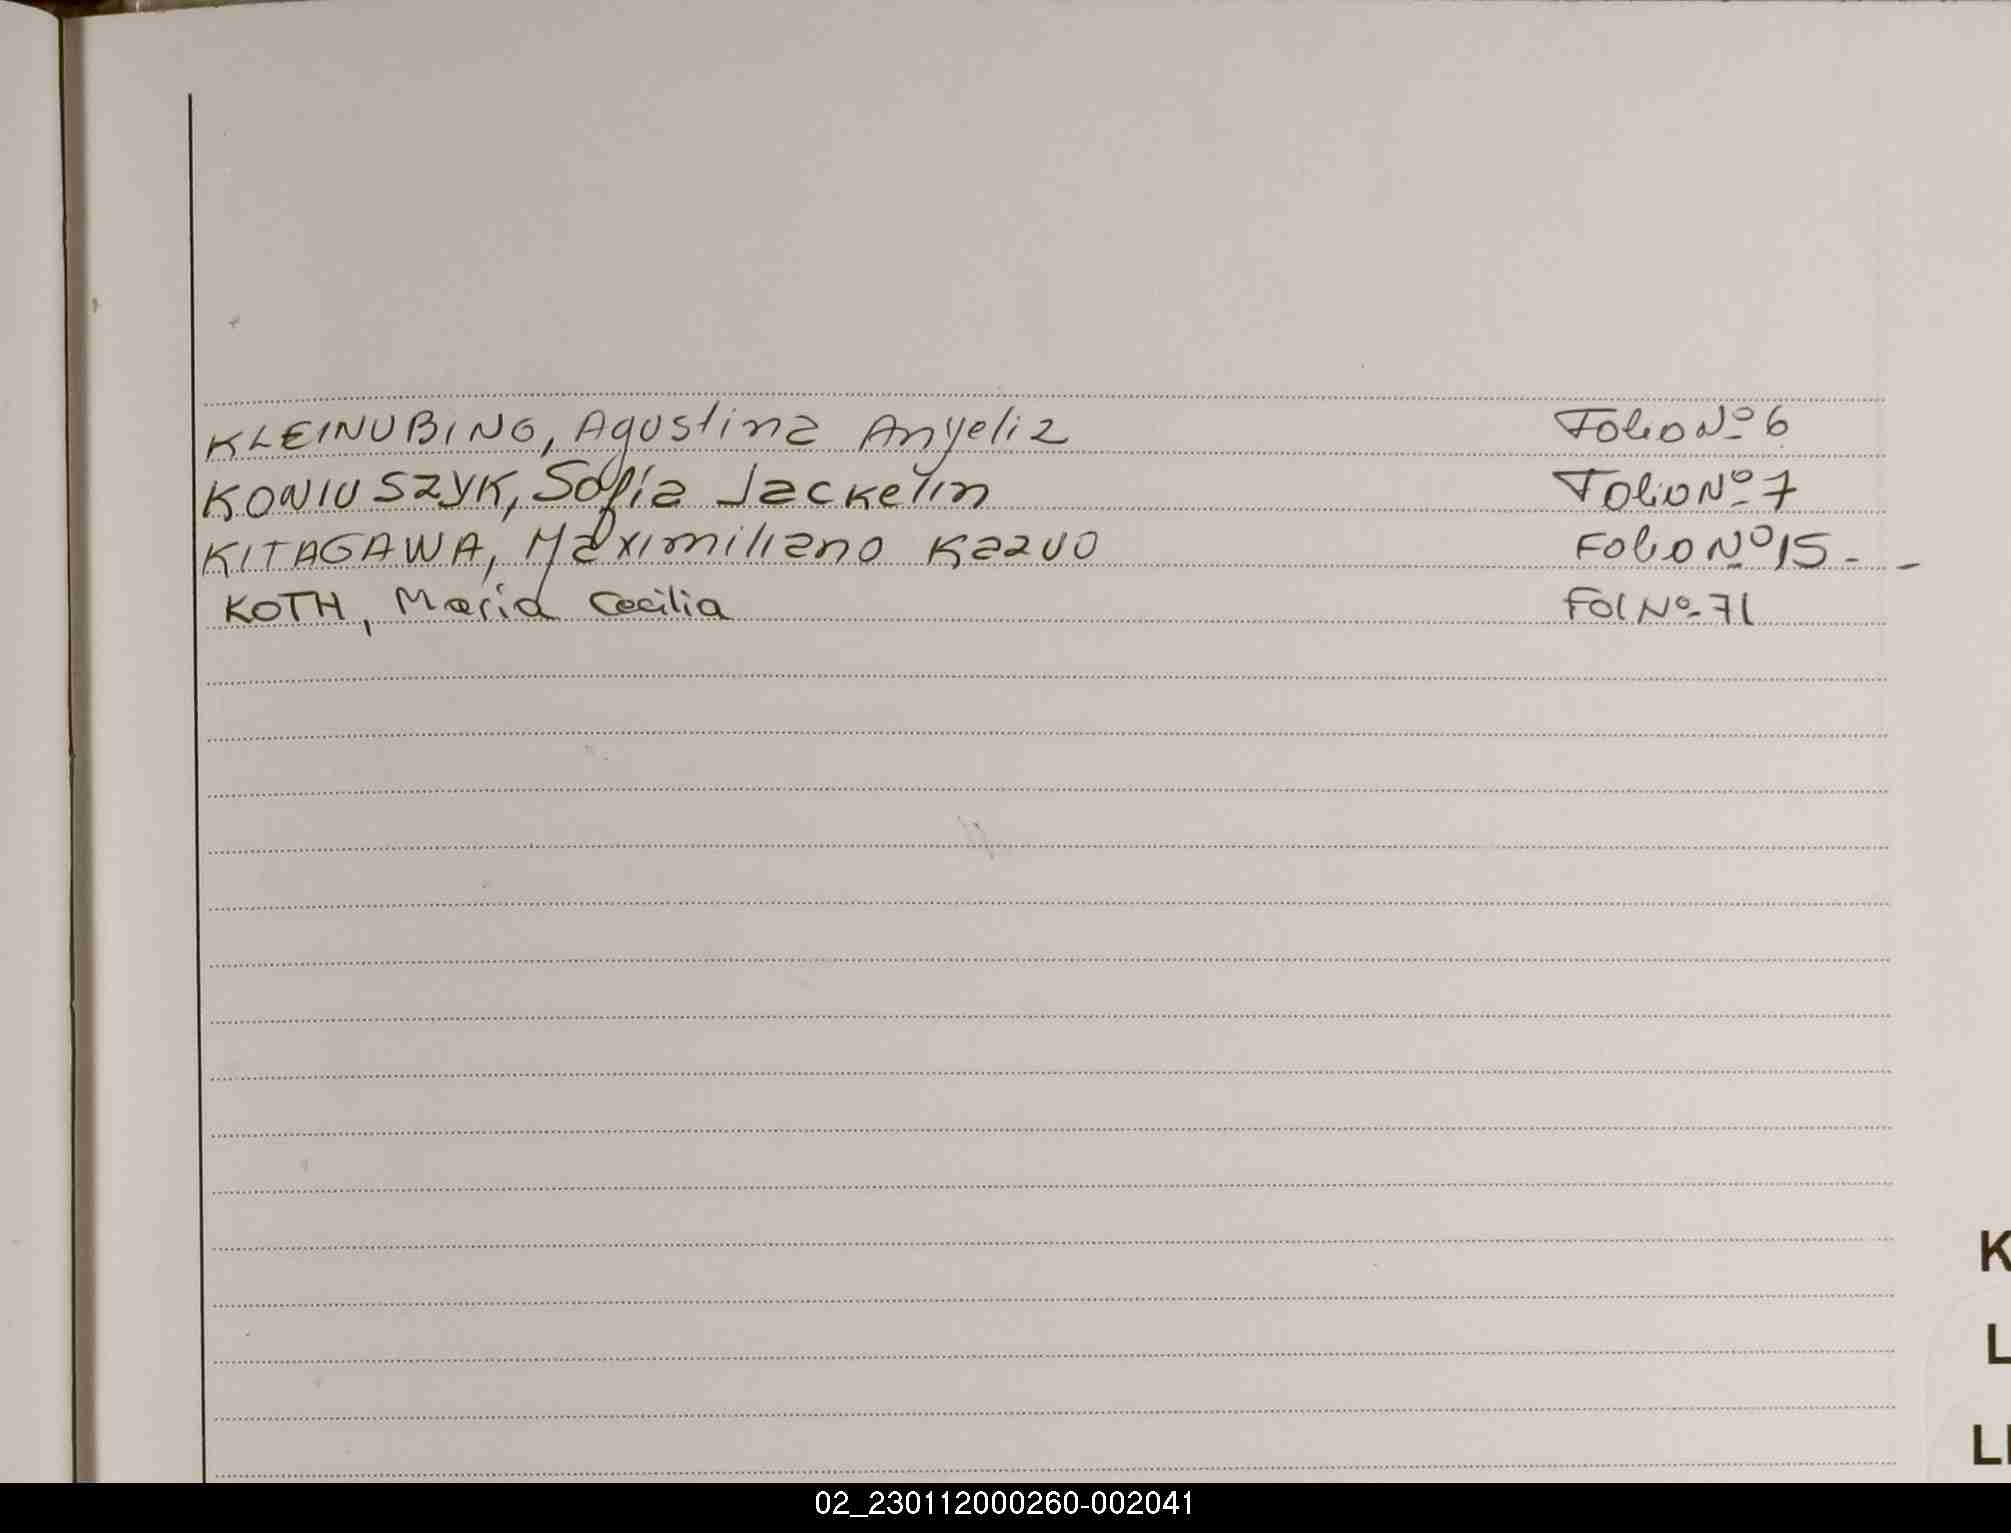 KLEINUBING, Agustina Anyeliz Folio Nº 6
KONIUSZYK, Sofía Jackelin Folio Nº 7
KITAGAWA, Maximiliano Kazuo Folio Nº 15.-
KOTH, Maria Cecilia Fol Nº 71
K
L
LL
02_230112000260-002041